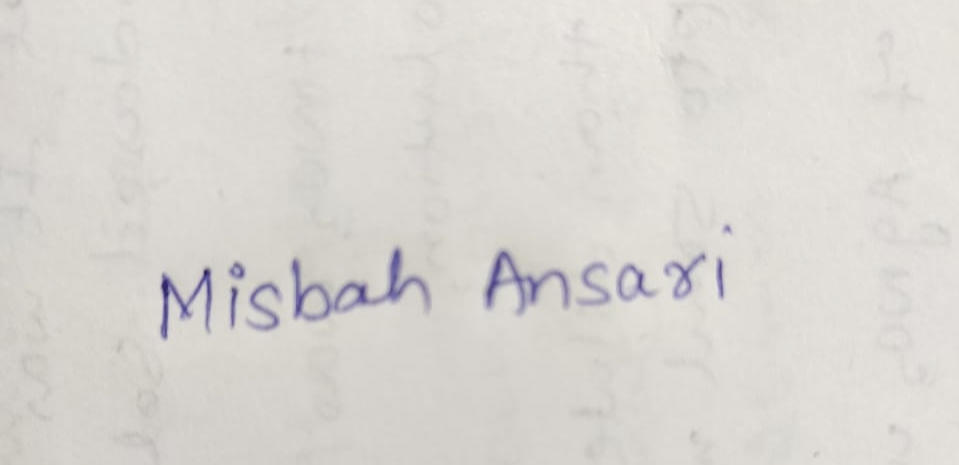 Misbah Ansari